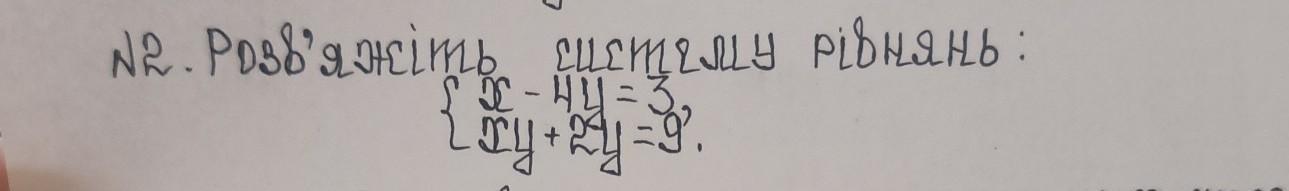 №2. Розв'яжіть систему рівнянь:
{ x - 4y = 3,
xy + 2y = 9.